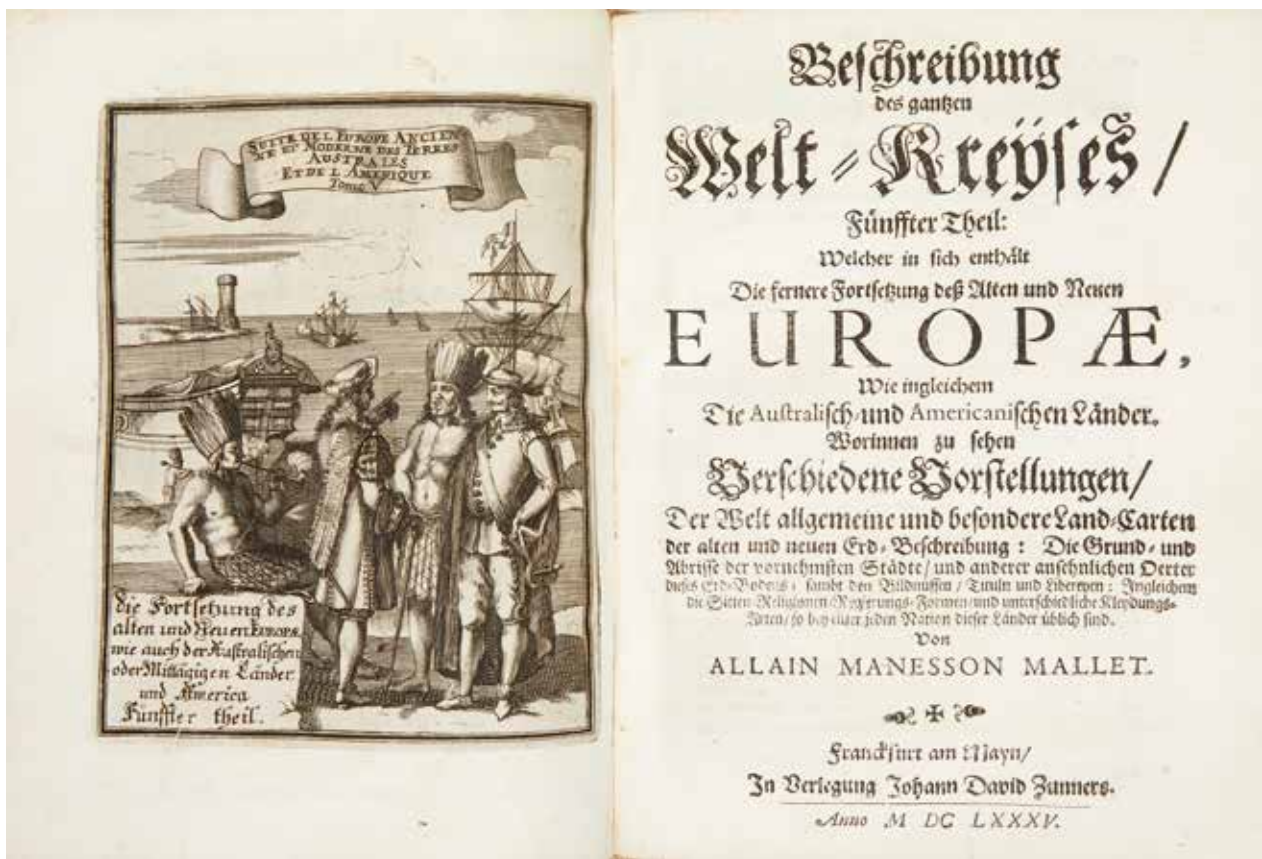 SUITE DE L EUROPE ANCIEN-
NE ET MODERNE DES TERRES
AUSTRALES
ET DE L AMERIQUE
Tome V
die Fortsetzung des
alten und Neuen EUROPÆ
wie auch der Australischen
oder Mittägigen Länder
und America
Fünffter theil.
Beschreibung
des gantzen
Welt-Kreÿses/
Fünffter Theil:
Welcher in sich enthält
Die fernere Fortsetzung deß Alten und Neuen
EUROPÆ,
Wie ingleichem
Die Australisch-und Americanischen Länder.
Worinnen zu sehen
Verschiedene Vorstellungen/
Der Welt allgemeine und besondere Land-Carten
der alten und neuen Erd-Beschreibung: Die Grund- und
Abrisse der vornehmsten Städte/und anderer ansehnlichen Oerter
dieses Erd-Bodens, sambt den Bildnüssen/Tituln und Libereyen: Ingleichem
die Sitten-Religionen-Regierungs-Formen/und unterschiedliche Kleydungs-
Arten/so bey einer jeden Nation dieser Länder üblich sind.
Von
ALLAIN MANESSON MALLET.
Franckfurt am Mayn/
In Verlegung Johann David Zunners.
Anno M DC LXXXV.